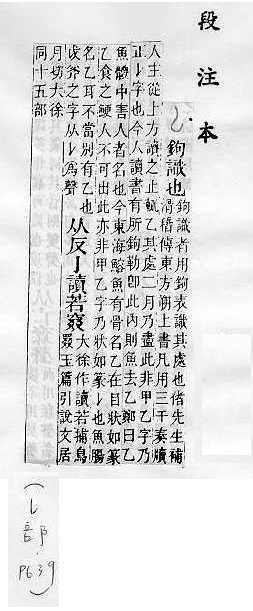 段注本
鉤識也
鉤識者用鉤表識其處也褚先生補
滑稽傳東方朔上書凡用三千奏牘
人主從上方讀之止輒乙其處二月乃盡此非甲乙字乃
正𠄌字也今人讀書有所鉤勒卽此內則魚去乙鄭曰乙
魚體中害人者名也今東海鰫魚有骨名乙在目狀如篆
乙食之鯁人不可出此亦非甲乙字乃狀如篆𠄌也魚腸
名乙耳不當別有乙也
戉斧之字从𠄌爲聲
从反亅讀若窡
大徐作讀若捕鳥
罬玉篇引說文居
月切大徐
同十五部
(𠄌部.P639)